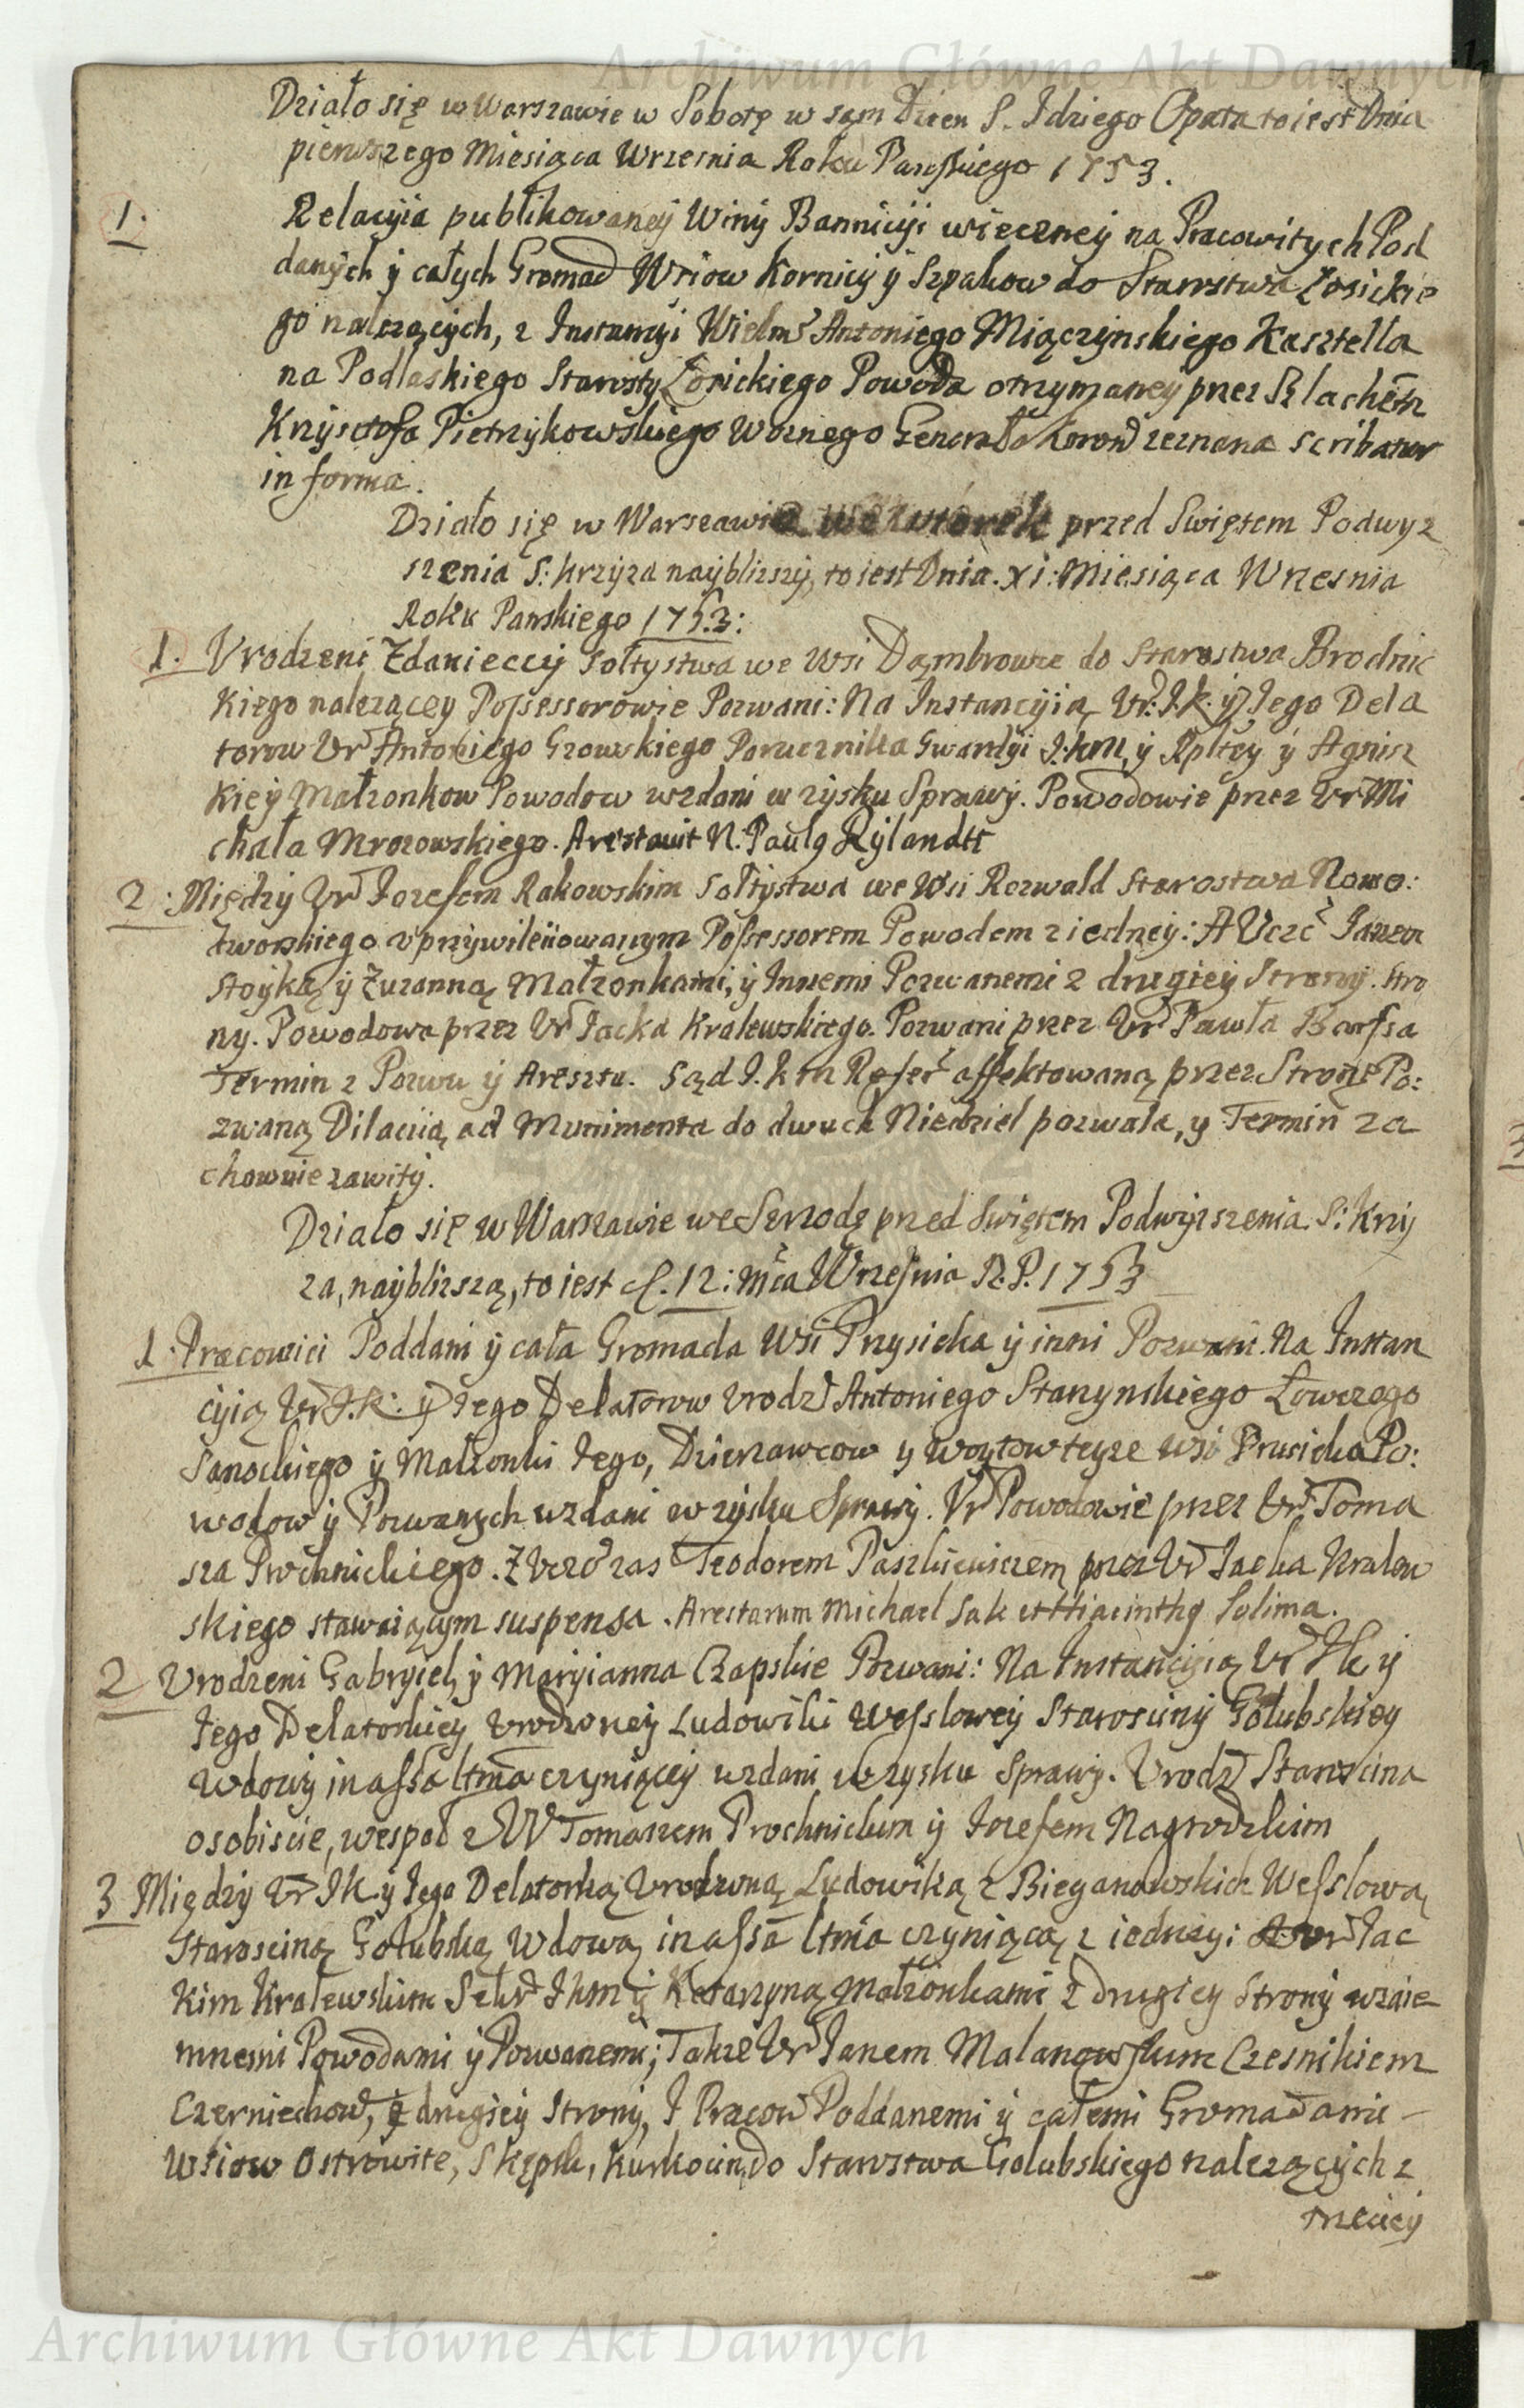 Archiwum Główne Akt Dawnych
Działo się w Warszawie w Sobotę w sam Dzien S. Idziego Opata to iest Dnia
pierwszego Miesiąca Wrzesnia Roku Pańskiego 1753.
1. Relacyia publikowaney Winy Bannicyi wieczney na Pracowitych Pod
danych y całych Gromad Wsiow Kornicy y Szpakow do Starostwa Łosickie
go nalezących, z Instancyi Wielm Antoniego Miączynskiego Kasztella
na Podlaskiego Starosty Łosickiego Powoda otrzymaney przez Szlachetn
Krzysztofa Pietrzykowskiego Woznego Generała Koron zeznana scribatur
in forma.
Działo się w Warszawie we wtorek przed Swiętem Podwyz
szenia S: krzyza nayblizszy, to iest Dnia. XI: Miesiąca Wrzesnia
Roku Panskiego 1753:
1. Vrodzeni Zdanieccy Sołtystwa we Wsi Dąmbrowce do Starostwa Brodnic
kiego nalezącey Possessorowie Pozwani: Na Instancyią Ur: I.K. y Iego Dela
torow Ur Antoniego Gzowskiego Porucznika Gwardyi I:km, y Rpltey y Agnisz
kiey Małzonkow Powodow wzdani w zysku Sprawy. Powodowie przez Ur Mi
chała Mrozowskiego. Arestavit N. Paulg Rylandtt
2. Między Ur Iozefem Rakowskim Sołtystwa we Wsi Rozwald Starostwa Nowo:
dworskiego uprzywileiiowanym Possessorem Powodem z iedney: A Uczć Ianem
Stoyką y Zuzanną Małzonkami, y Innemi Pozwanemi z drugiey Strony. Stro
ny. Powodowa przez Ur Iacka Kralewskiego. Pozwani przez Ur Pawła Barssa
Termin z Pozwu y Aresztu. Sąd I. k m Referč affektowaną przez Stronę Po:
zwaną Dilacyią ad Munimenta do dwuch Niedziel pozwala, y Termin za
chownie zawity.
Działo się w Warszawie we Srzodę przed Swiętem Podwyzszenia S: Krzy
za, nayblizszą, to iest d. 12: Mca Wrzesnia R. P. 1753
1. Pracowici Poddani y cała Gromada Wsi Przysieka y inni Pozwani. Na Instan
cyią Ur I.K: y Iego Delatorow Vrodz Antoniego Starzynskiego Łowczego
Sanockiego y Małzonki Iego, Dzierzawcow y Woytow teyze wsi Prusieka Po:
wodow y Pozwanych wzdani w zysku Sprawy. Ur Powodowie przez Ur Toma
sza Prochnickiego. Z Uczć zas Teodorem Paszkiewiczem przez Ur Iacka Kralew
skiego stawaiącym suspensa. Arestarunt Michael Sak et Hiacinthg Solima.
2 Vrodzeni Gabryiel y Maryianna Czapskie Pozwani: Na Instancyią Ur IK y
Iego Delatorkiey Vrodzoney Ludowiki Wesslowey Starosciny Golubskiey
Wdowy in assa ltma czyniącey wzdani w zysku Sprawy. Vrodz Staroscina
osobiscie, wespoł z UU Tomaszem Prochnickim y Iozefem Nagrodzkim
3 Między Ur IK y Iego Delatorką Vrodzoną Ludowiką z Bieganowskich Wesslową
Starosciną Gołubską Wdową in assa ltma czyniącą z iedney: A Ur Iac
kim Kralewskim Sekr Ikm y Katarzyną Małzonkami z drugiey Strony wzaie
mnemi Powodami y Pozwanemi; Takze Ur Ianem Malanowskim Czesnikiem
Czerniechow, z drugiey Strony, I Pracow Poddanemi y całemi Gromadami
Wsiow Ostrowite, Skępsk, Kurkocin, do Starostwa Golubskiego nalezących z
trzeciey
Archiwum Główne Akt Dawnych